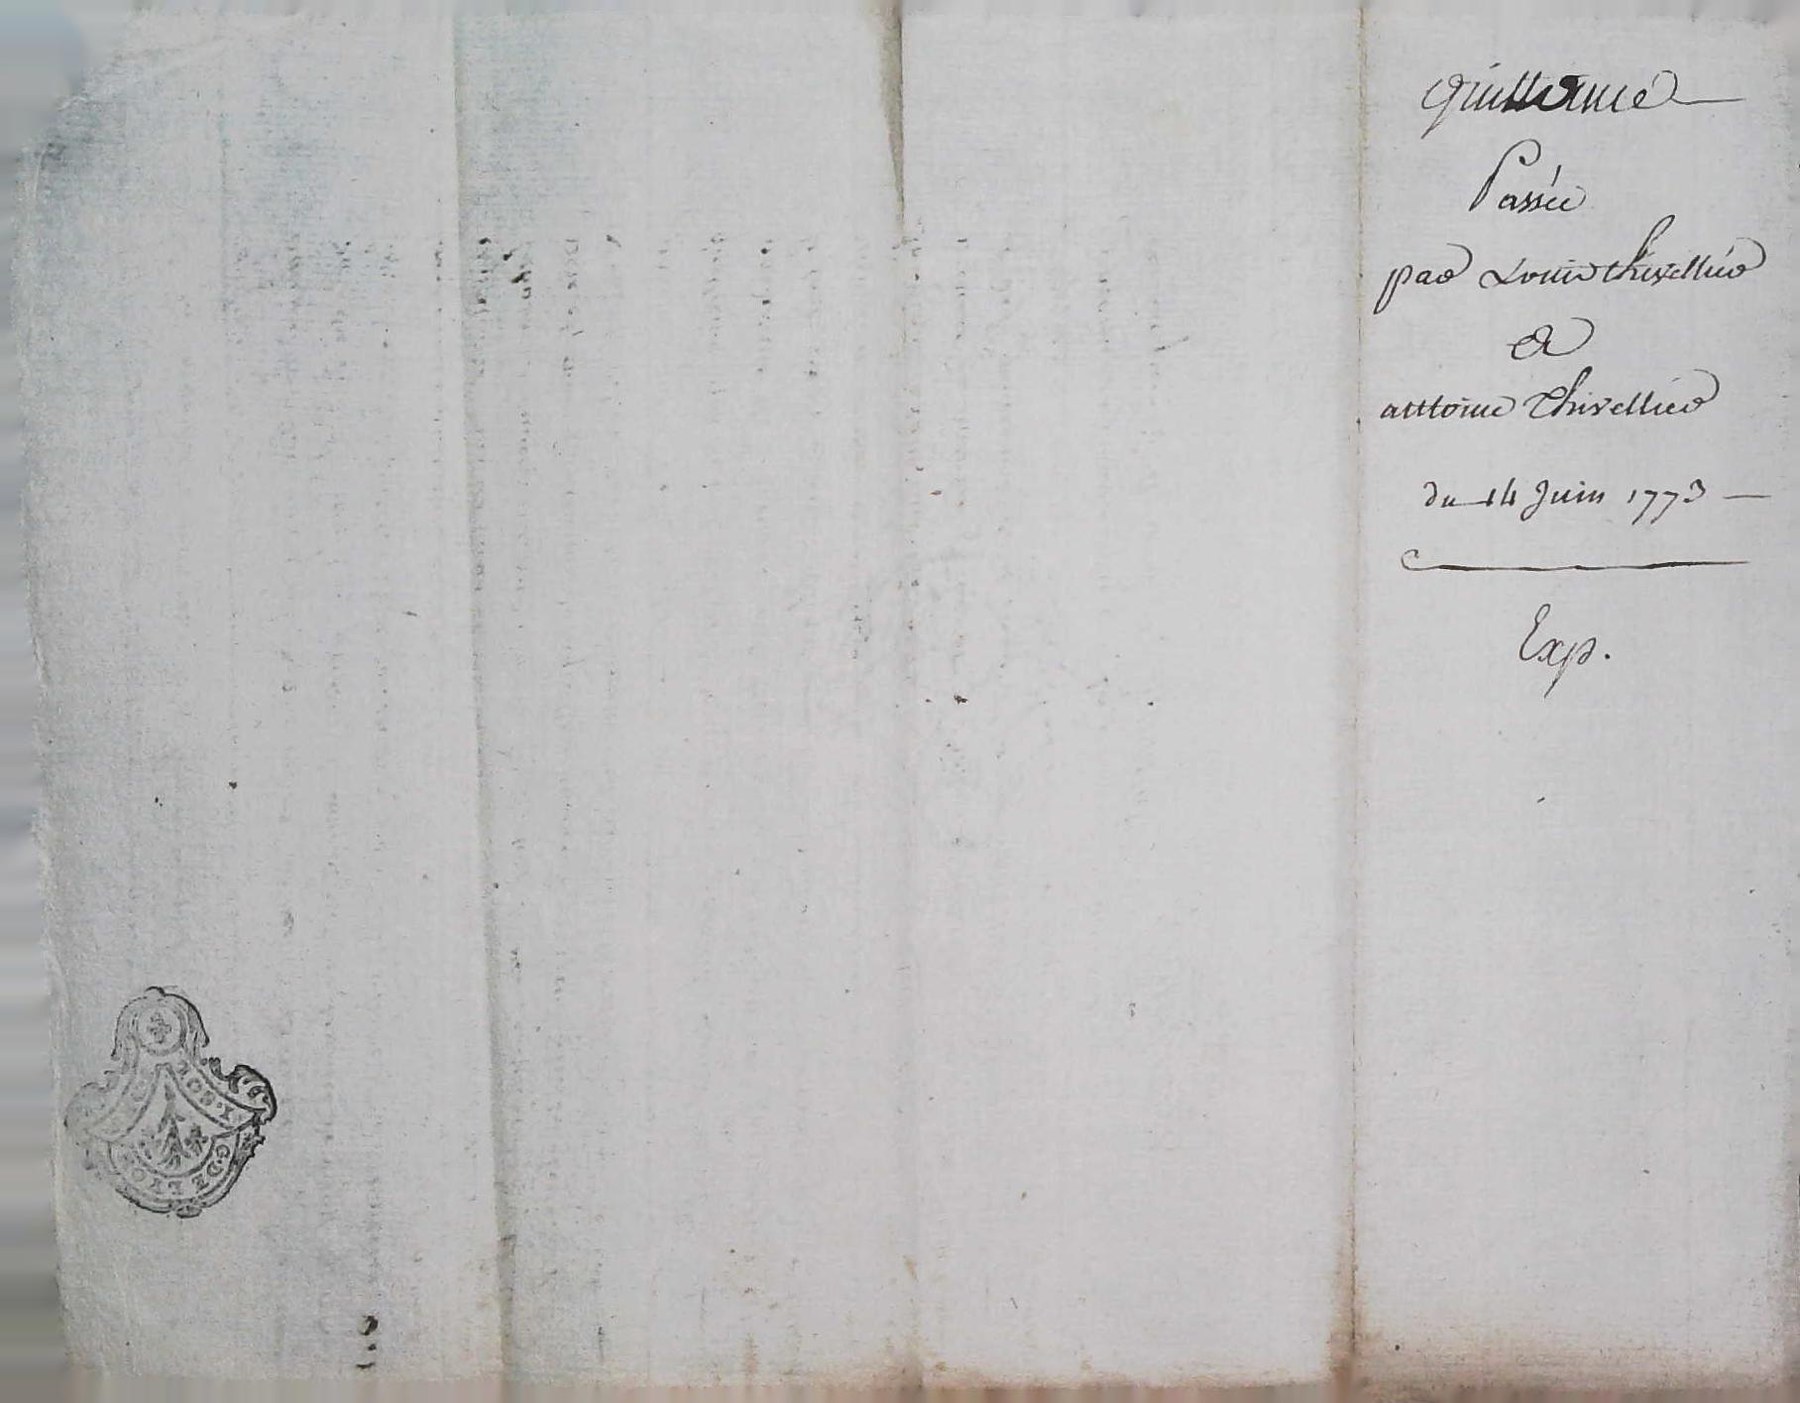 Quittance
Passée
par Louis thivellier
Et
anttoine Thivellier
du 14 Juin 1773
Exp.